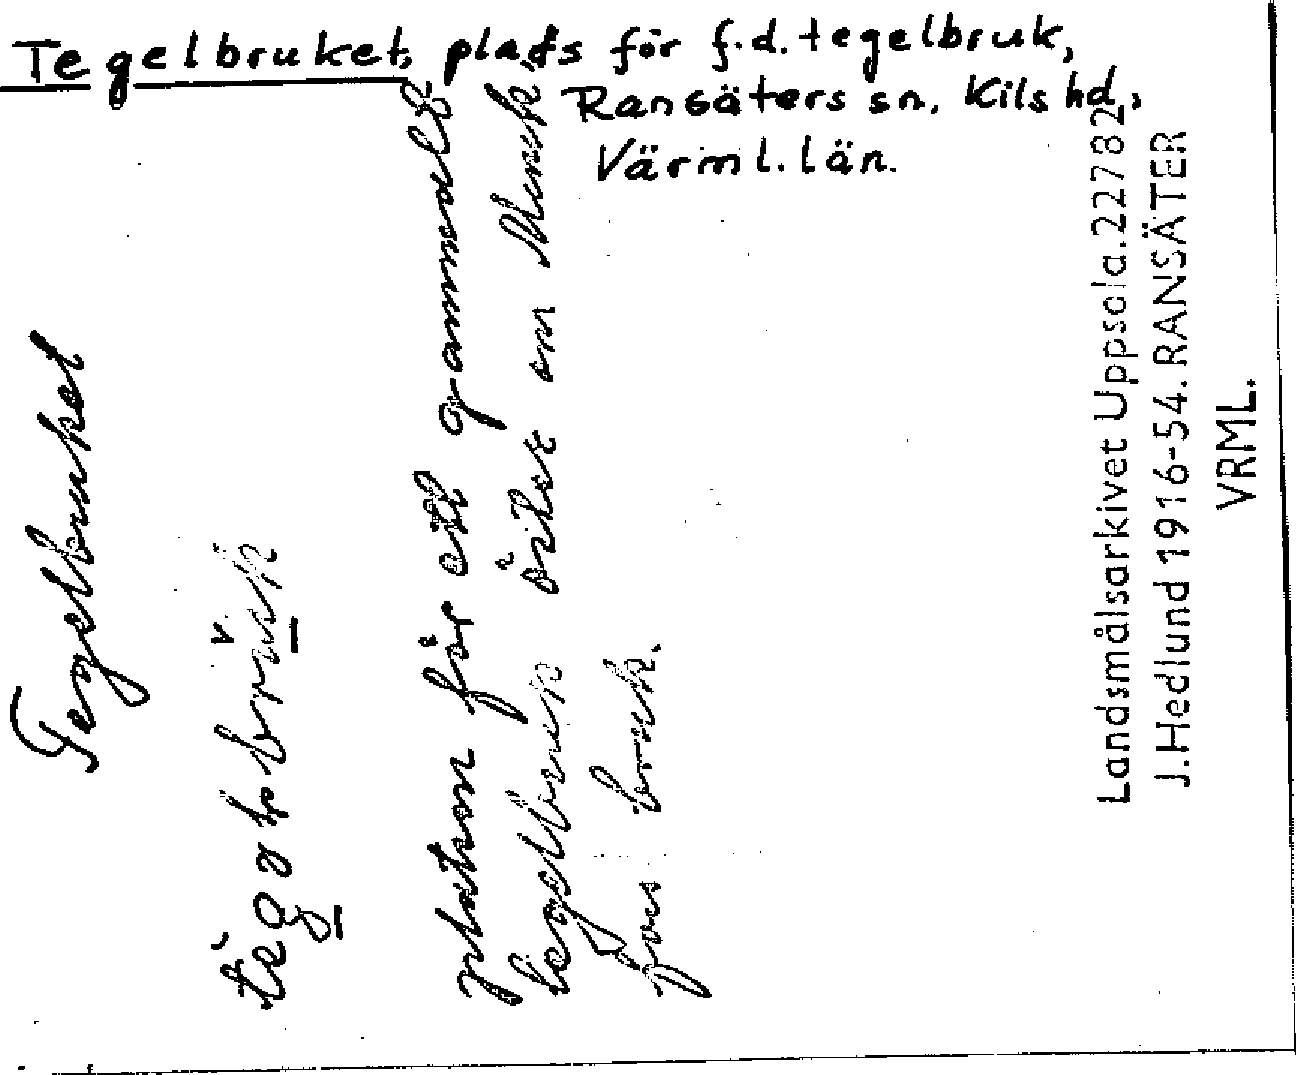 Tegelbruket, plats för f.d. tegelbruk,
Ransäters sn. Kils hd.,
Värml. län.
Tegelbruket
platsen för ett gammalt
tegelbruk öster om Munk-
fors bruk.
Landsmålsarkivet Uppsala. 22782
J. Hedlund 1916-54. RANSÄTER
VRML.